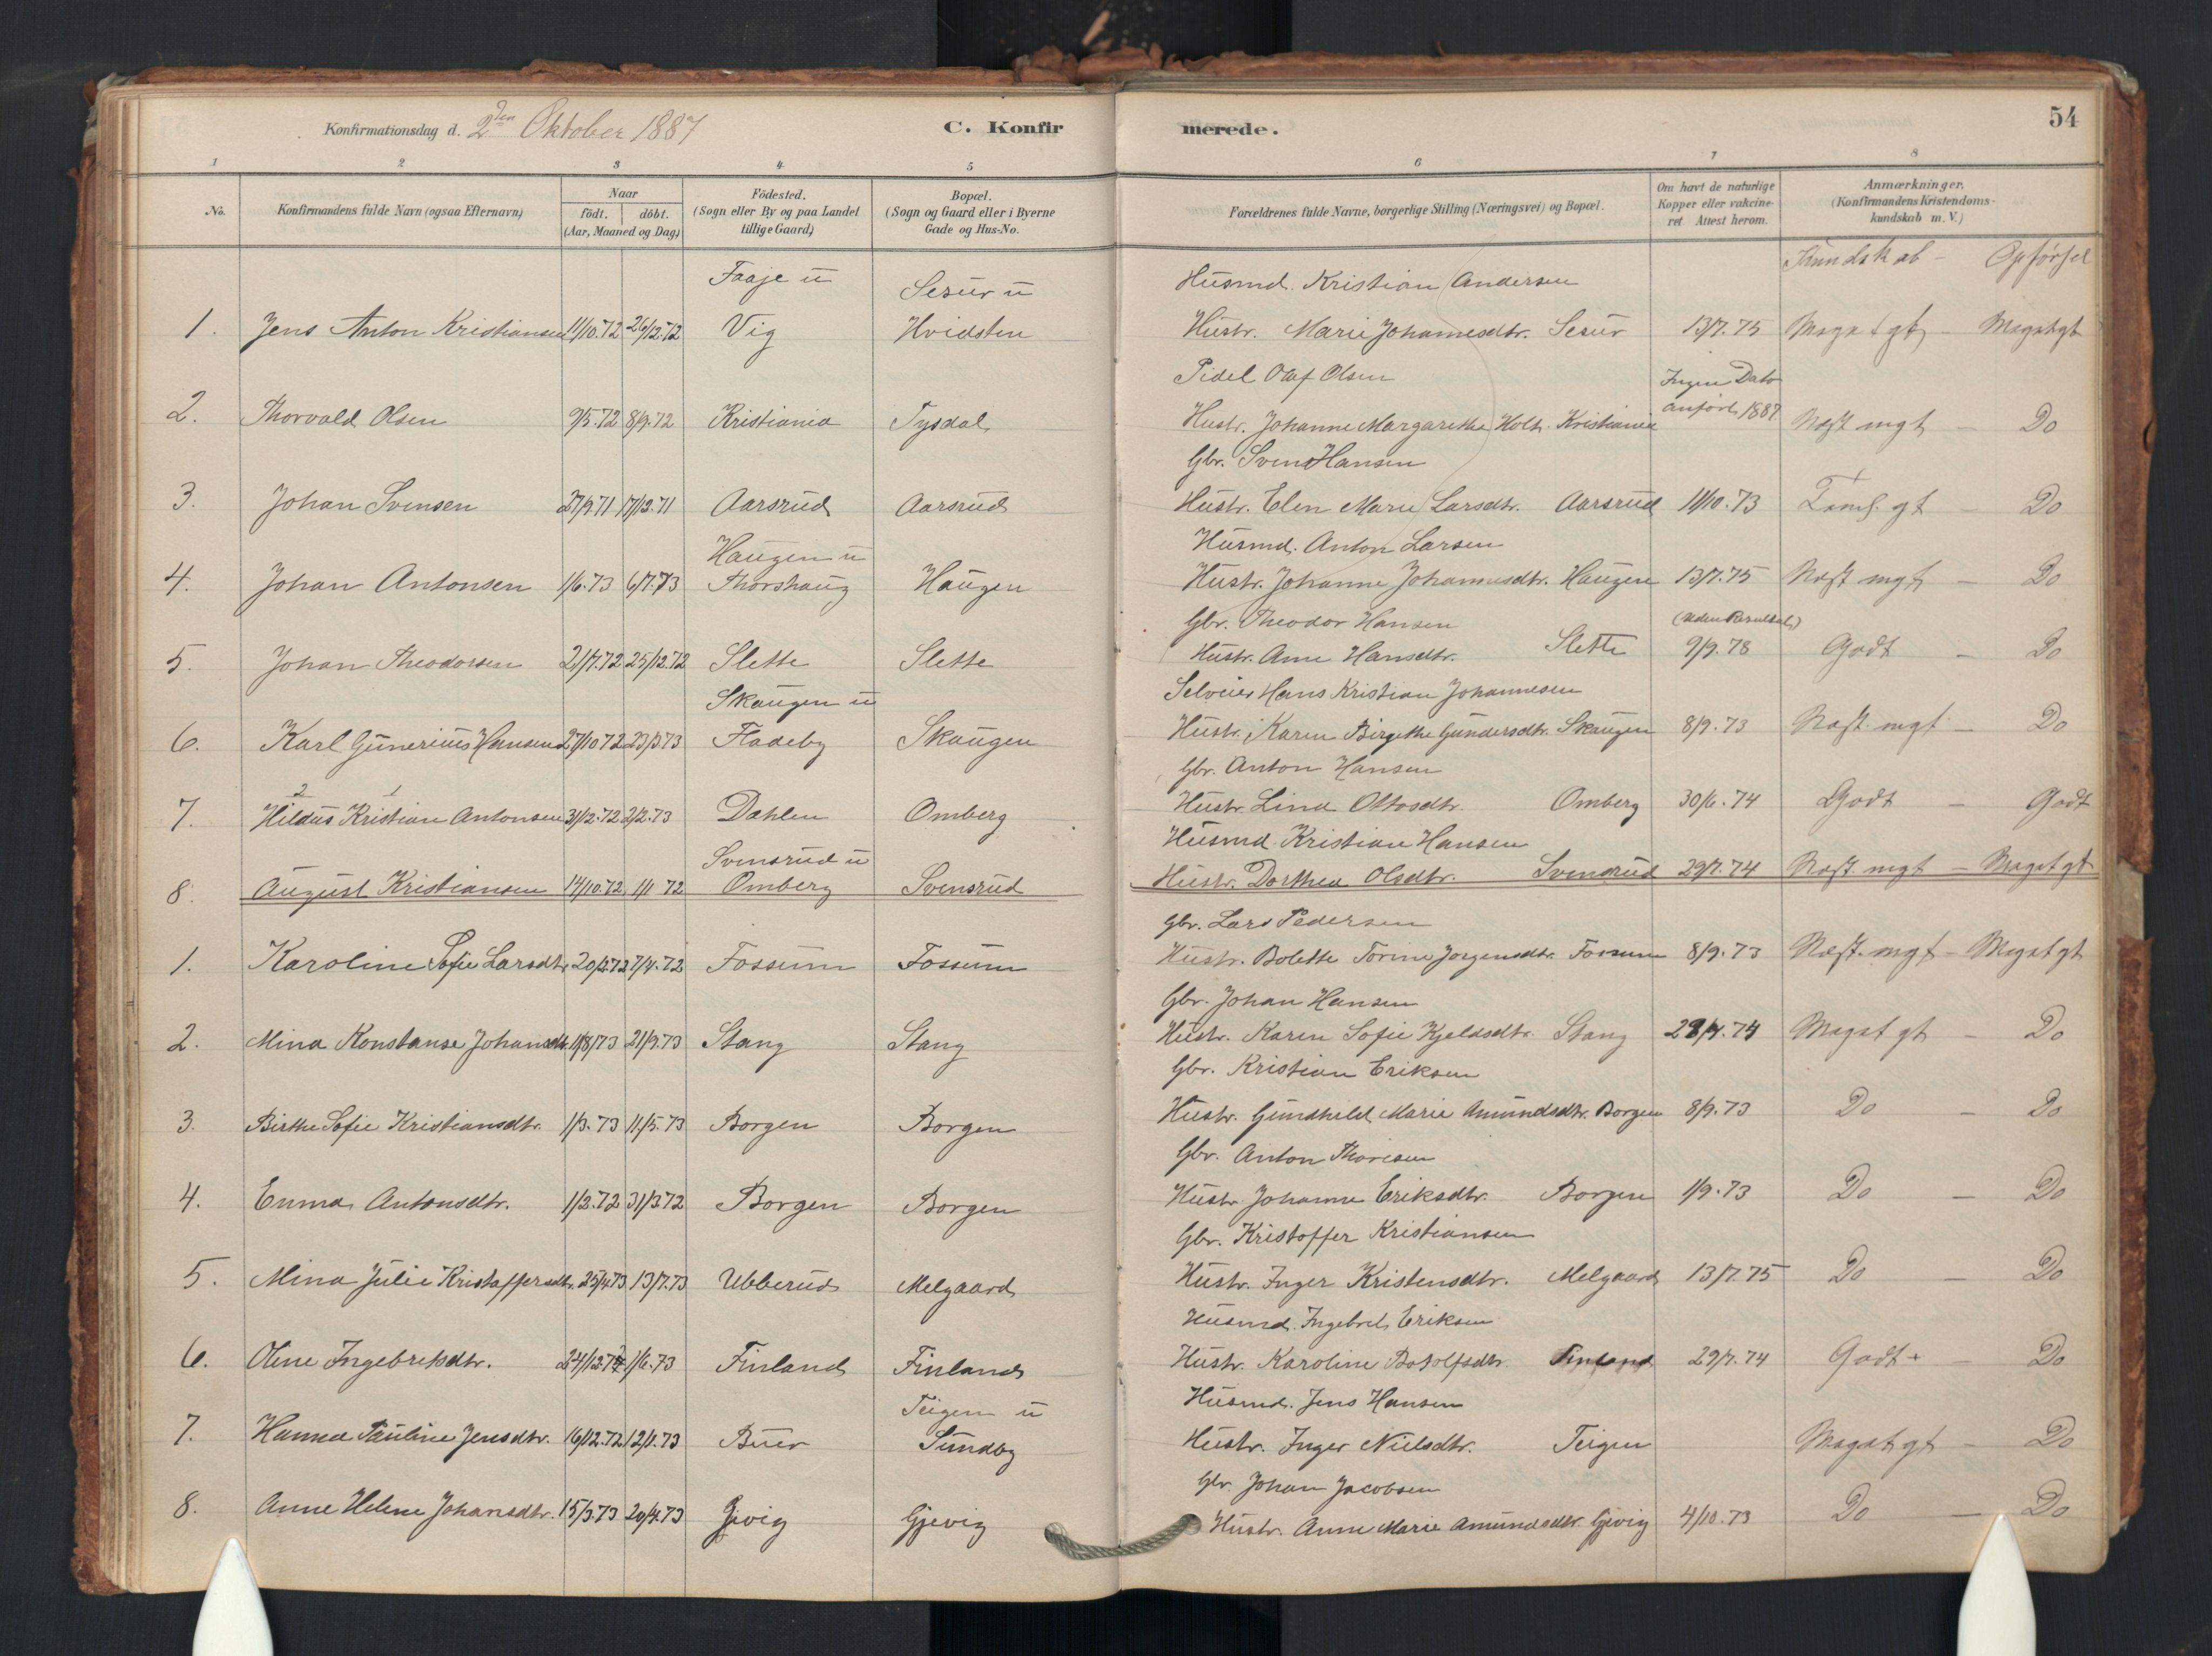 Konfirmationsdag d. 2den Oktober 1887 C. Konfirmerede. 54
1 2 3 4 5 6 7 8
No. Konfirmandens fulde Navn (ogsaa Efternavn) Naar födt. döbt. (Aar, Maaned og Dag) Födested. (Sogn eller By og paa Landet tillige Gaard) Bopæl. (Sogn og Gaard eller i Byerne Gade og Hus-No. Forældrenes fulde Navne, borgerlige Stilling (Næringsvei) og Bopæl. Om havt de naturlige Kopper eller vakcineret Attest herom. Anmærkninger. (Konfirmandens Kristendomskundskab m. V.)
Kundskab - Opførsel
Faaje u Sesur u Husmd. Kristian Andersen
1. Jens Anton Kristiansen 11/10.72 26/12.72 Vig Hvidsten Hustr. Marie Johannesdtr. Sesur 13/7.75 Megetgt - Megetgt
Pidel Olaf Olsen Ingen Dato
2. Thorvald Olsen 9/5.72 8/9.72 Kristiania Tysdal Hustr. Johanne Margarethe Holt Kristiania anført 1887 Næst mgt - Do
Gbr. Svend Hansen
3. Johan Svensen 27/9.71 17/12.71 Aarsrud Aarsrud Hustr. Elen Marie Larsdtr. Aarsrud 11/10.73 Teml. gt - Do
Haugen u Husmd. Anton Larsen
4. Johan Antonsen 1/6.73 6/7.73 Thorshaug Haugen Hustr. Johanne Johannesdtr. Haugen 13/7.75 Næst mgt - Do
Gbr. Theodor Hansen (uden Resultat)
5. Johan Theodorsen 21/7.72 25/12.72 Slette Slette Hustr. Anne Hansdtr. Slette 9/9.78 Godt - Do
Skaugen u Selveier Hans Kristian Johannesen
6. Karl Gunerius Hansen 27/10.72 23/3.73 Fladeby Skaugen Hustr. Karen Birgethe Gundersdtr. Skaugen 8/9.73 Næst. mgt - Do
2 1 Gbr. Anton Hansen
7. Hildus Kristian Antonsen 31/12.72 2/2.73 Dahlen Omberg Hustr. Lina Ottosdtr. Omberg 30/6.74 Godt - Godt
Svensrud u Husmd. Kristian Hansen
8. August Kristiansen 14/10.72 1/1 72 Omberg Svensrud Hustr. Dorthea Olsdtr. Svensrud 29/7.74 Næst. mgt - Megetgt
Gbr. Lars Pedersen
1. Karoline Sofie Larsdtr. 20/2.72 7/4.72 Fossum Fossum Hustr. Bolette Torine Jørgensdtr. Fossum 8/9.73 Næst. mgt - Megetgt
Gbr. Johan Hansen
2. Mina Konstanse Johansdtr. 11/8/73 21/9.73 Stang Stang Hustr. Karen Sofie Kjeldsdtr. Stang 28/7.74 Megetgt - Do
Gbr. Kristian Eriksen
3. Birthe Sofie Kristiansdtr. 1/3.73 11/5.73 Borgen Borgen Hustr. Gundhild Marie Amundsdtr. Borgen 8/9.73 Do - Do
Gbr. Anton Thoresen
4. Emma Antonsdtr. 1/2.72 31/3.72 Borgen Borgen Hustr. Johanne Eriksdtr. Borgen 1/9.73 Do - Do
Gbr. Kristoffer Kristiansen
5. Mina Julie Kristoffersdtr. 25/4.73 13/7.73 Ubberud Melgaard Hustr. Inger Kristensdtr. Melgaard 13/7.75 Do - Do
Husmd. Ingebret Eriksen
6. Oline Ingebretsdtr. 24/12.72 1/6.73 Finland Finland Hustr. Karoline Botolfsdtr. Finland 29/7.74 Godt+ - Do
Teigen u Husmd. Jens Hansen
7. Hanna Pauline Jensdtr. 16/12.72 12/1.73 Buer Sundby Hustr. Inger Nielsdtr. Teigen Megetgt - Do
Gbr. Johan Jacobsen
8. Anne Helene Johansdtr. 15/3.73 20/4.73 Gjevig Gjevig Hustr. Anne Marie Amundsdtr. Gjevig 4/10.73 Do - Do